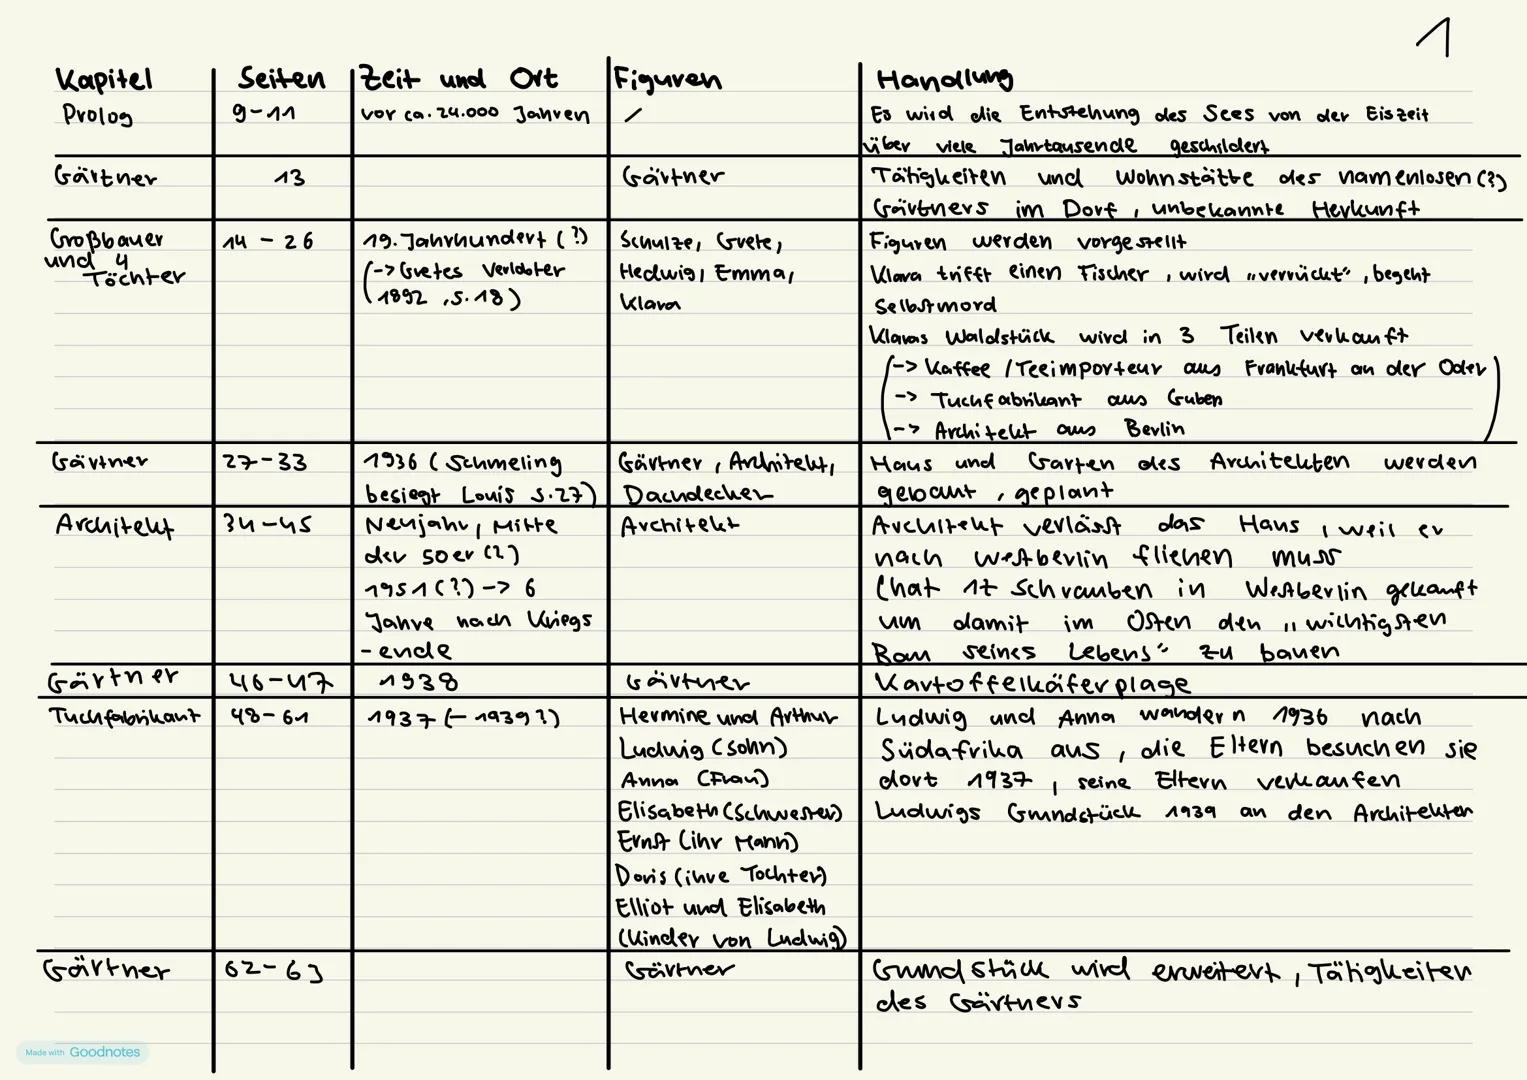 1
Kapitel Seiten Zeit und Ort Figuren Handlung
Prolog 9-11 vor ca. 24.000 Jahren / Es wird die Entstehung des Sees von der Eiszeit
über viele Jahrtausende geschildert
Gärtner 13 Gärtner Tätigkeiten und Wohnstätte des namenlosen (?)
Gärtners im Dorf, unbekannte Herkunft
Großbauer 14 - 26 19. Jahrhundert (?) Schulze, Grete, Figuren werden vorgestellt
und 4 Töchter (-> Gretes Verlobter Hedwig, Emma, Klara trifft einen Fischer, wird "verrückt", begeht
1892, S. 18) Klara Selbstmord
Klaras Waldstück wird in 3 Teilen verkauft
(-> Kaffee / Teeimporteur aus Frankfurt an der Oder)
-> Tuchfabrikant aus Guben
-> Architekt aus Berlin
Gärtner 27-33 1936 (Schmeling Gärtner, Architekt, Haus und Garten des Architekten werden
besiegt Louis S. 27) Dachdecker gebaut, geplant
Architekt 34-45 Neujahr, Mitte Architekt Architekt verlässt das Haus, weil er
der 50er (?) nach Westberlin fliehen muss
1951 (?) -> 6 (hat 1t Schrauben in Westberlin gekauft
Jahre nach Kriegs um damit im Osten den "wichtigsten
-ende Bau seines Lebens" zu bauen
Gärtner 46-47 1938 Gärtner Kartoffelkäferplage
Tuchfabrikant 48-61 1937 (-1939?) Hermine und Arthur Ludwig und Anna wandern 1936 nach
Ludwig (Sohn) Südafrika aus, die Eltern besuchen sie
Anna (Frau) dort 1937, seine Eltern verkaufen
Elisabeth (Schwester) Ludwigs Grundstück 1939 an den Architekten
Ernst (ihr Mann)
Doris (ihre Tochter)
Elliot und Elisabeth
(Kinder von Ludwig)
Gärtner 62-63 Gärtner Grundstück wird erweitert, Tätigkeiten
des Gärtners
Made with Goodnotes